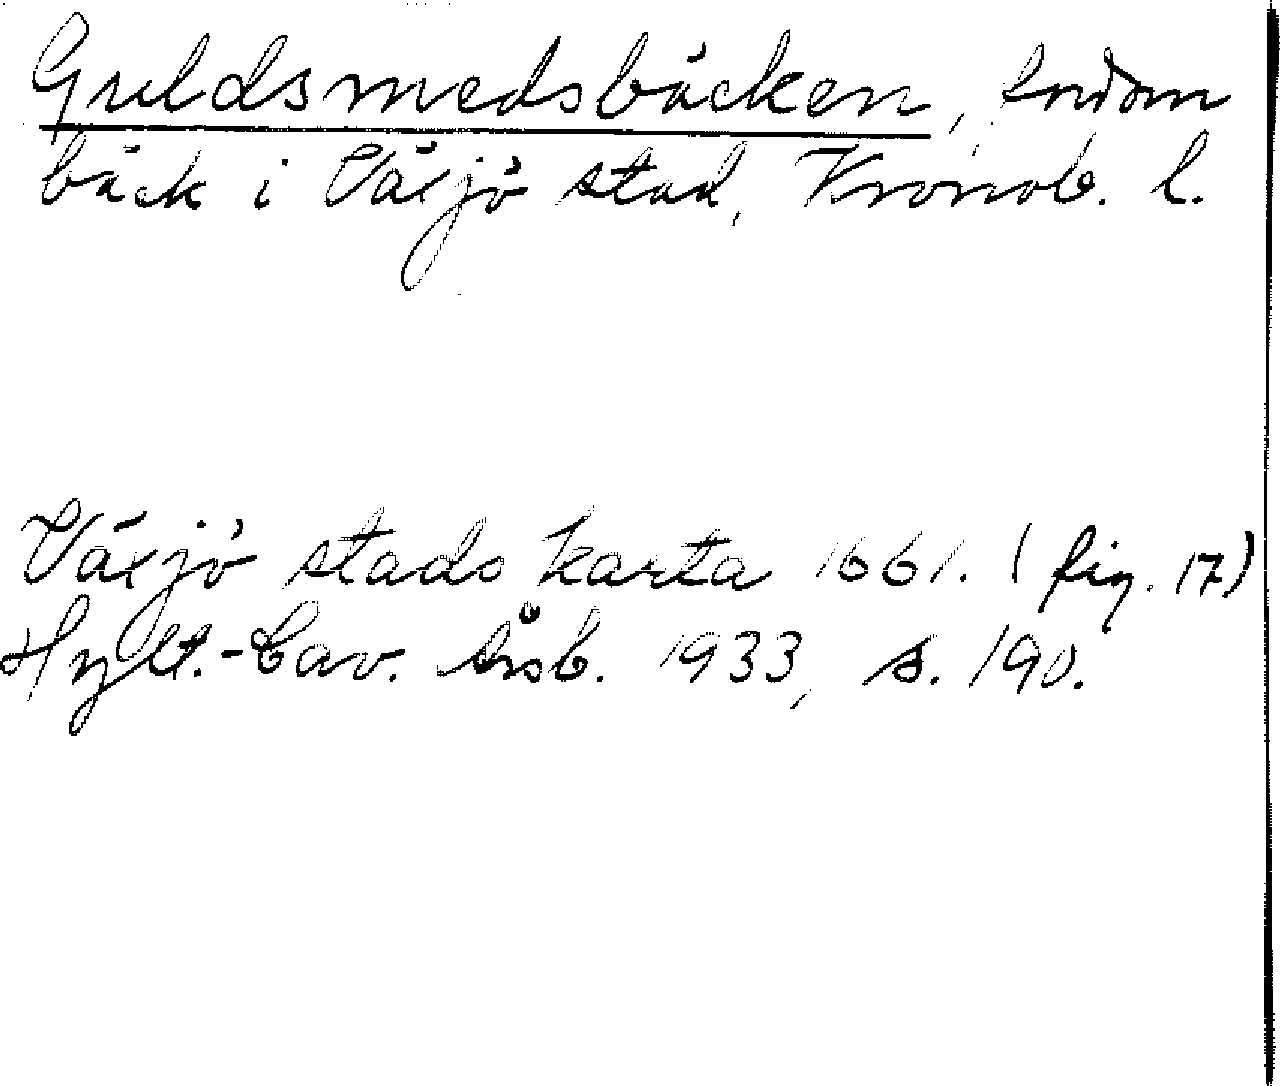 Guldsmedsbäcken, fordom
bäck i Växjö stad, Kronob. l.
Växjö stads karta 1661. (fig. 17)
Hylt.-Cav. Årsb. 1933, s. 190.